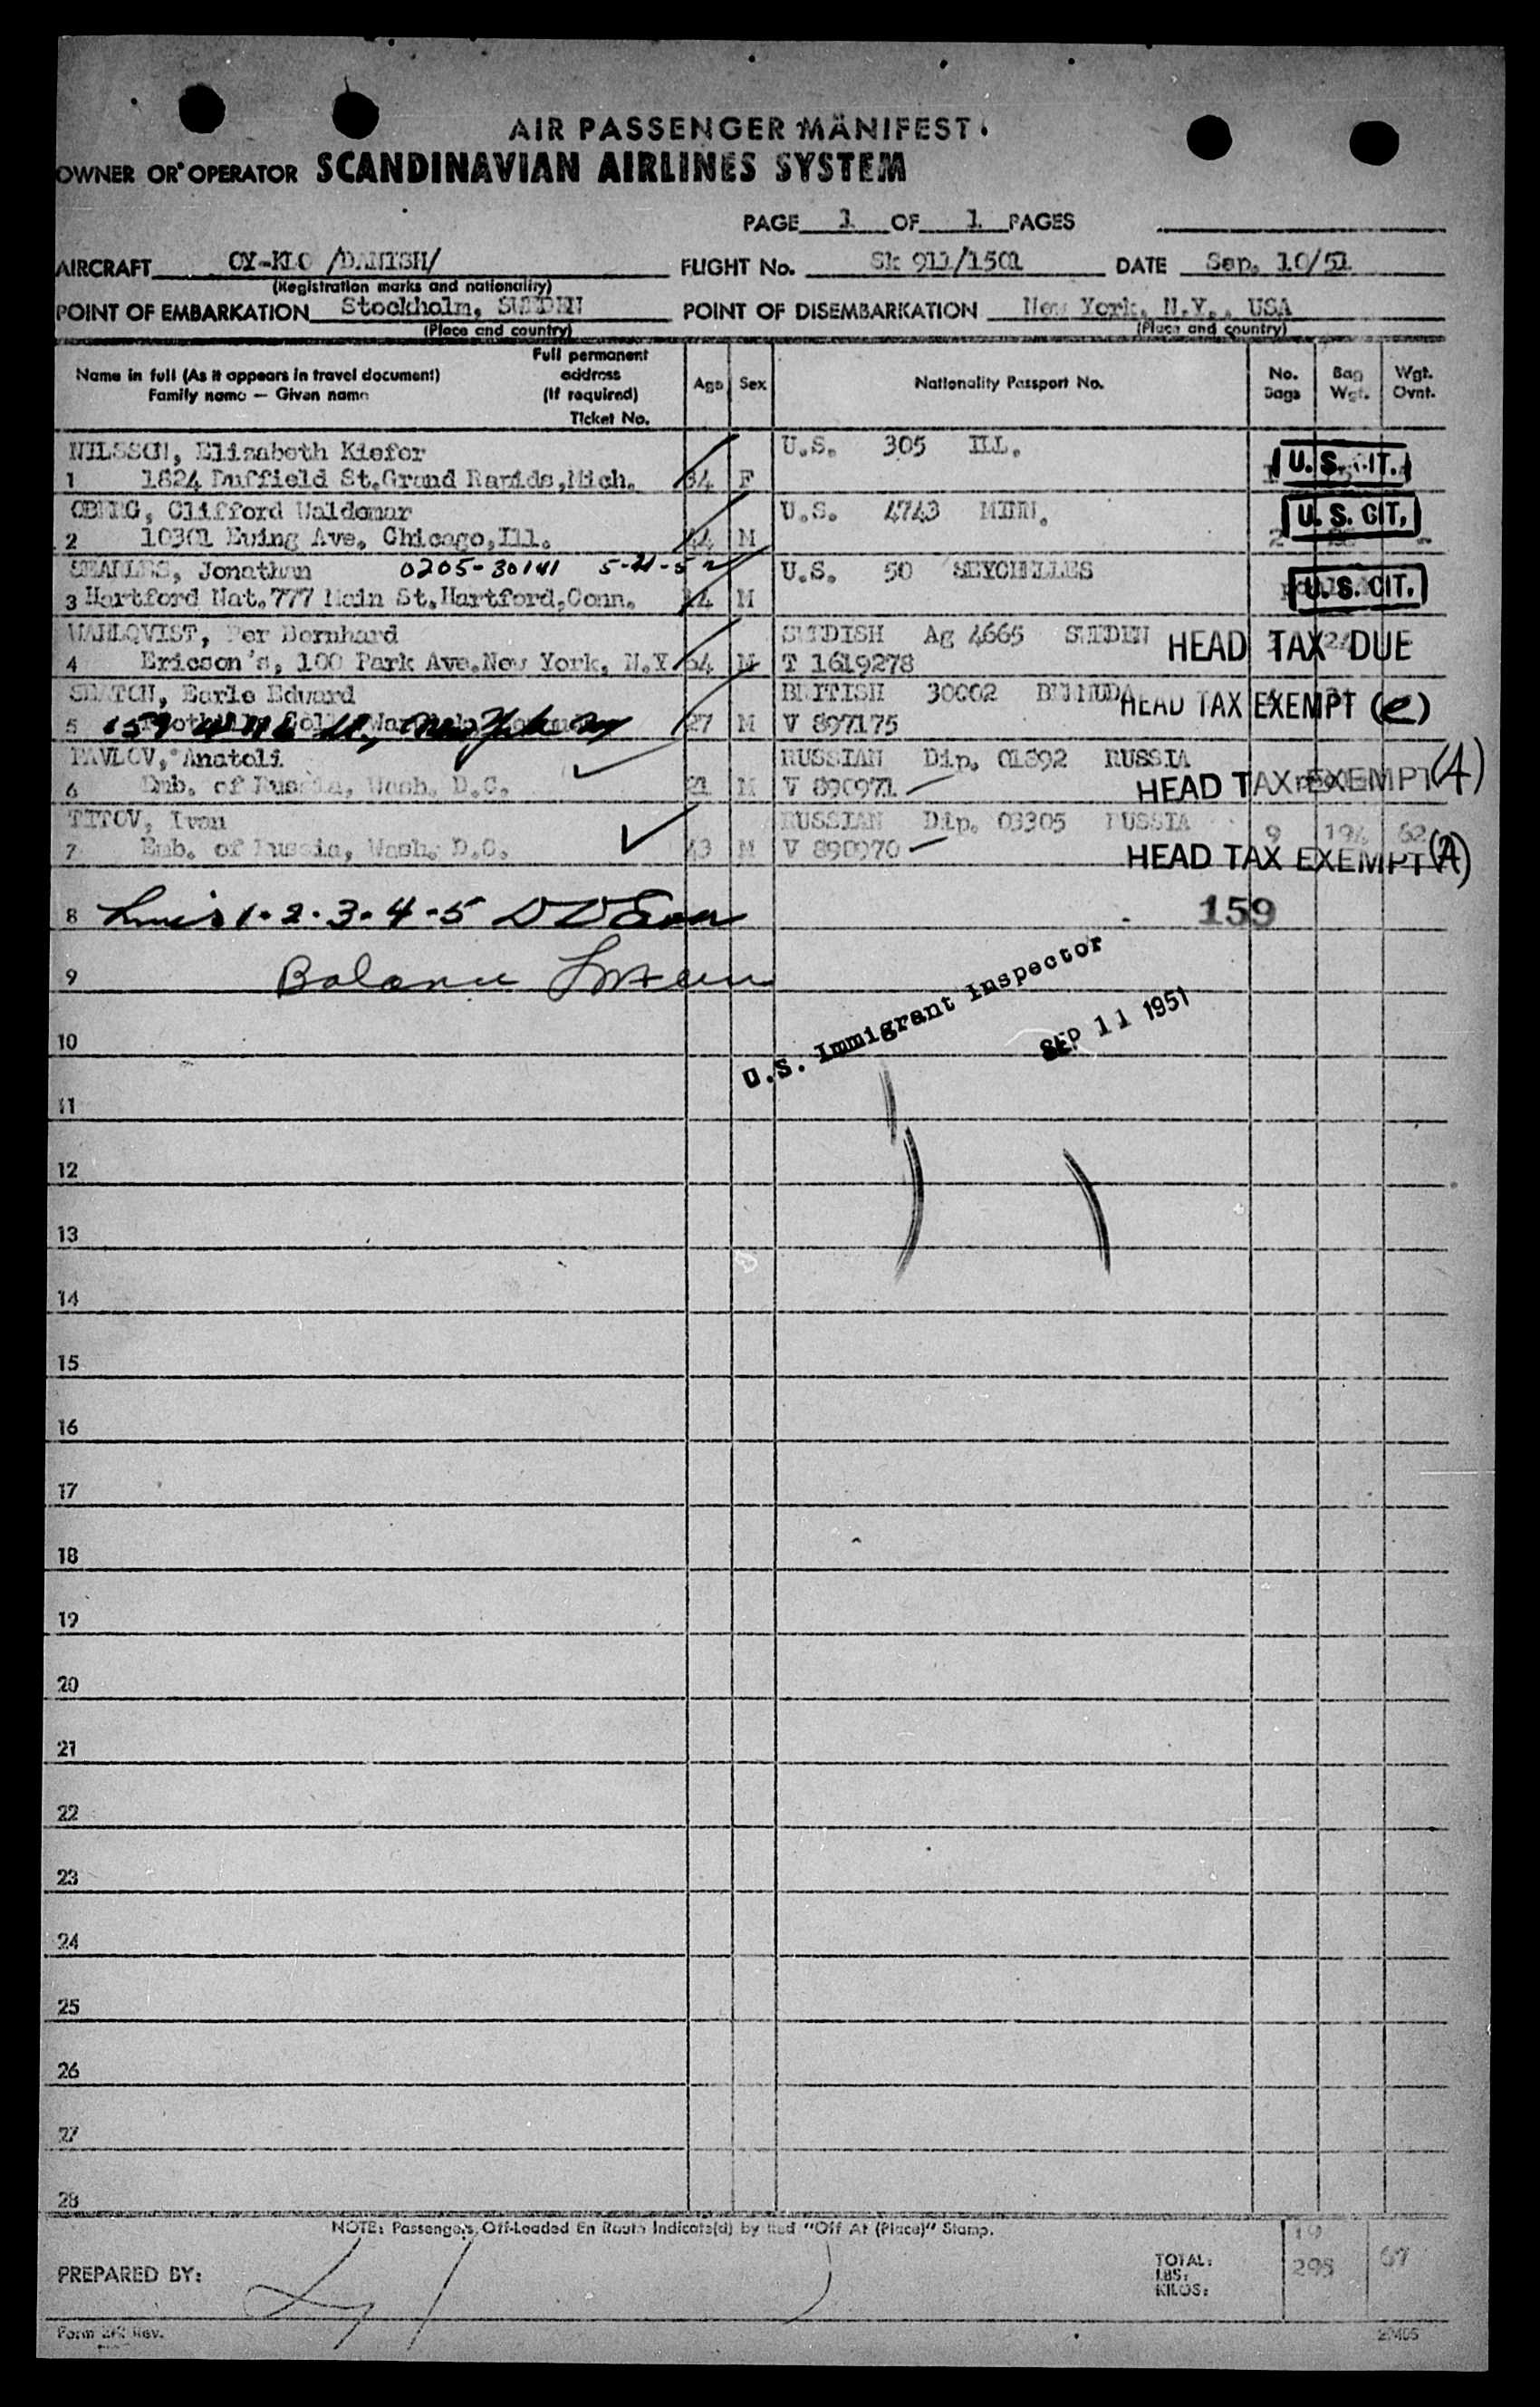 AIR PASSENGER MANIFEST
OWNER OR OPERATOR SCANDINAVIAN AIRLINES SYSTEM
PAGE 1 OF 1 PAGES
AIRCRAFT OY-KLO /DANISH/ FLIGHT No. Sk 911/1501 DATE Sep. 10/51
(Registration marks and nationality)
POINT OF EMBARKATION Stockholm, SWEDEN POINT OF DISEMBARKATION New York, N.Y., USA
(Place and country) (Place and country)
Name in full (As it appears in travel document) Family name — Given name
Full permanent address (If required) Ticket No.
Age Sex Nationality Passport No. No. Bags Bag Wgt. Wgt. Ovnt.
NILSSON, Elisabeth Kiefer U.S. 305 ILL.
1 1824 Duffield St.Grand Rapids,Mich. F U.S. CIT.
OBERG, Clifford Waldemar U.S. 4743 MINN.
2 10301 Ewing Ave. Chicago,Ill. 44 M 2 U.S. CIT.
SEARLES, Jonathan 0205-30141 5-21-52 U.S. 50 SEYCHELLES
3 Hartford Nat.777 Main St.Hartford,Conn. M U.S. CIT.
WAHLQVIST, Per Bernhard SWEDISH Ag 4665 SWEDEN
4 Ericson's, 100 Park Ave.New York, N.Y 54 M T 1619278 HEAD TAX DUE
SEATON, Earle Edward BRITISH 30002 BERMUDA
5 27 M V 897175 HEAD TAX EXEMPT (e)
PAVLOV, Anatoli RUSSIAN Dip. 01892 RUSSIA
6 Emb. of Russia, Wash. D.C. 21 M V 890971 HEAD TAX EXEMPT (A)
TITOV, Ivan RUSSIAN Dip. 03305 RUSSIA 9 194 62
7 Emb. of Russia, Wash. D.C. 43 M V 890970 HEAD TAX EXEMPT (A)
8 1-2-3-4-5 159
9 Balance
U.S. Immigrant Inspector SEP 11 1951
10
11
12
13
14
15
16
17
18
19
20
21
22
23
24
25
26
27
28
NOTE: Passengers Off-Loaded En Route Indicate(d) by Red "Off At (Place)" Stamp.
PREPARED BY:
TOTAL: 19
LBS: 295 67
KILOS:
Form Rev.